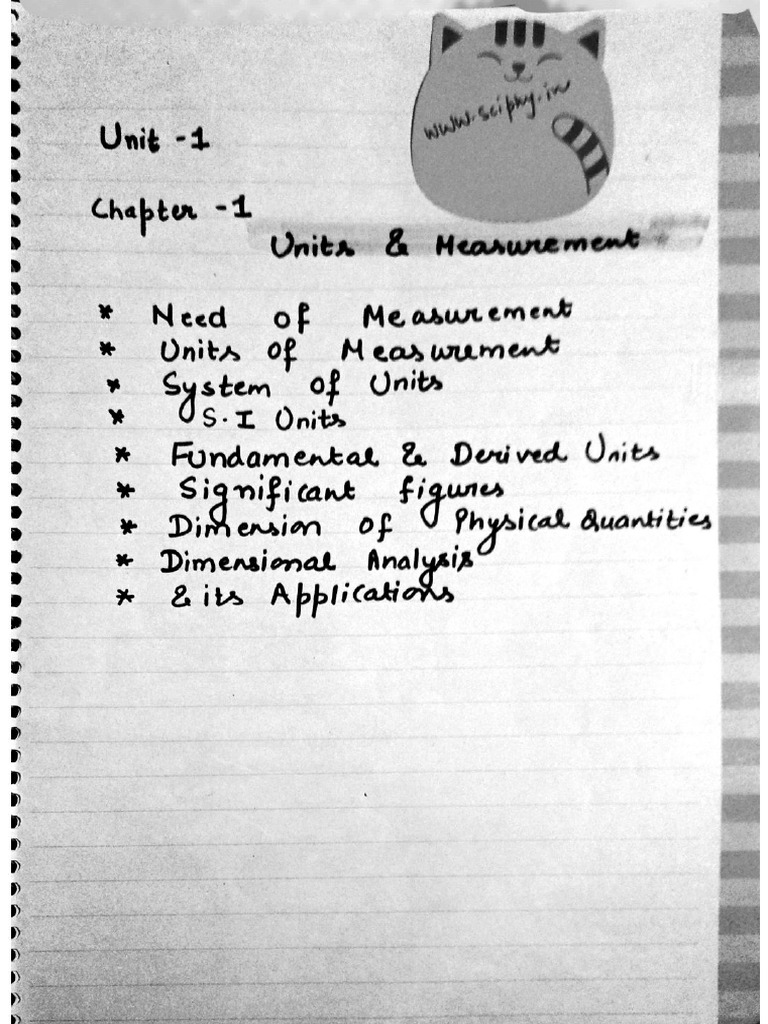 www.sciphy.in
Unit -1
Chapter -1
Units & Measurement
* Need of Measurement
* Units of Measurement
* System of Units
* S.I Units
* Fundamental & Derived Units
* Significant figures
* Dimension of Physical Quantities
* Dimensional Analysis
* & its Applications